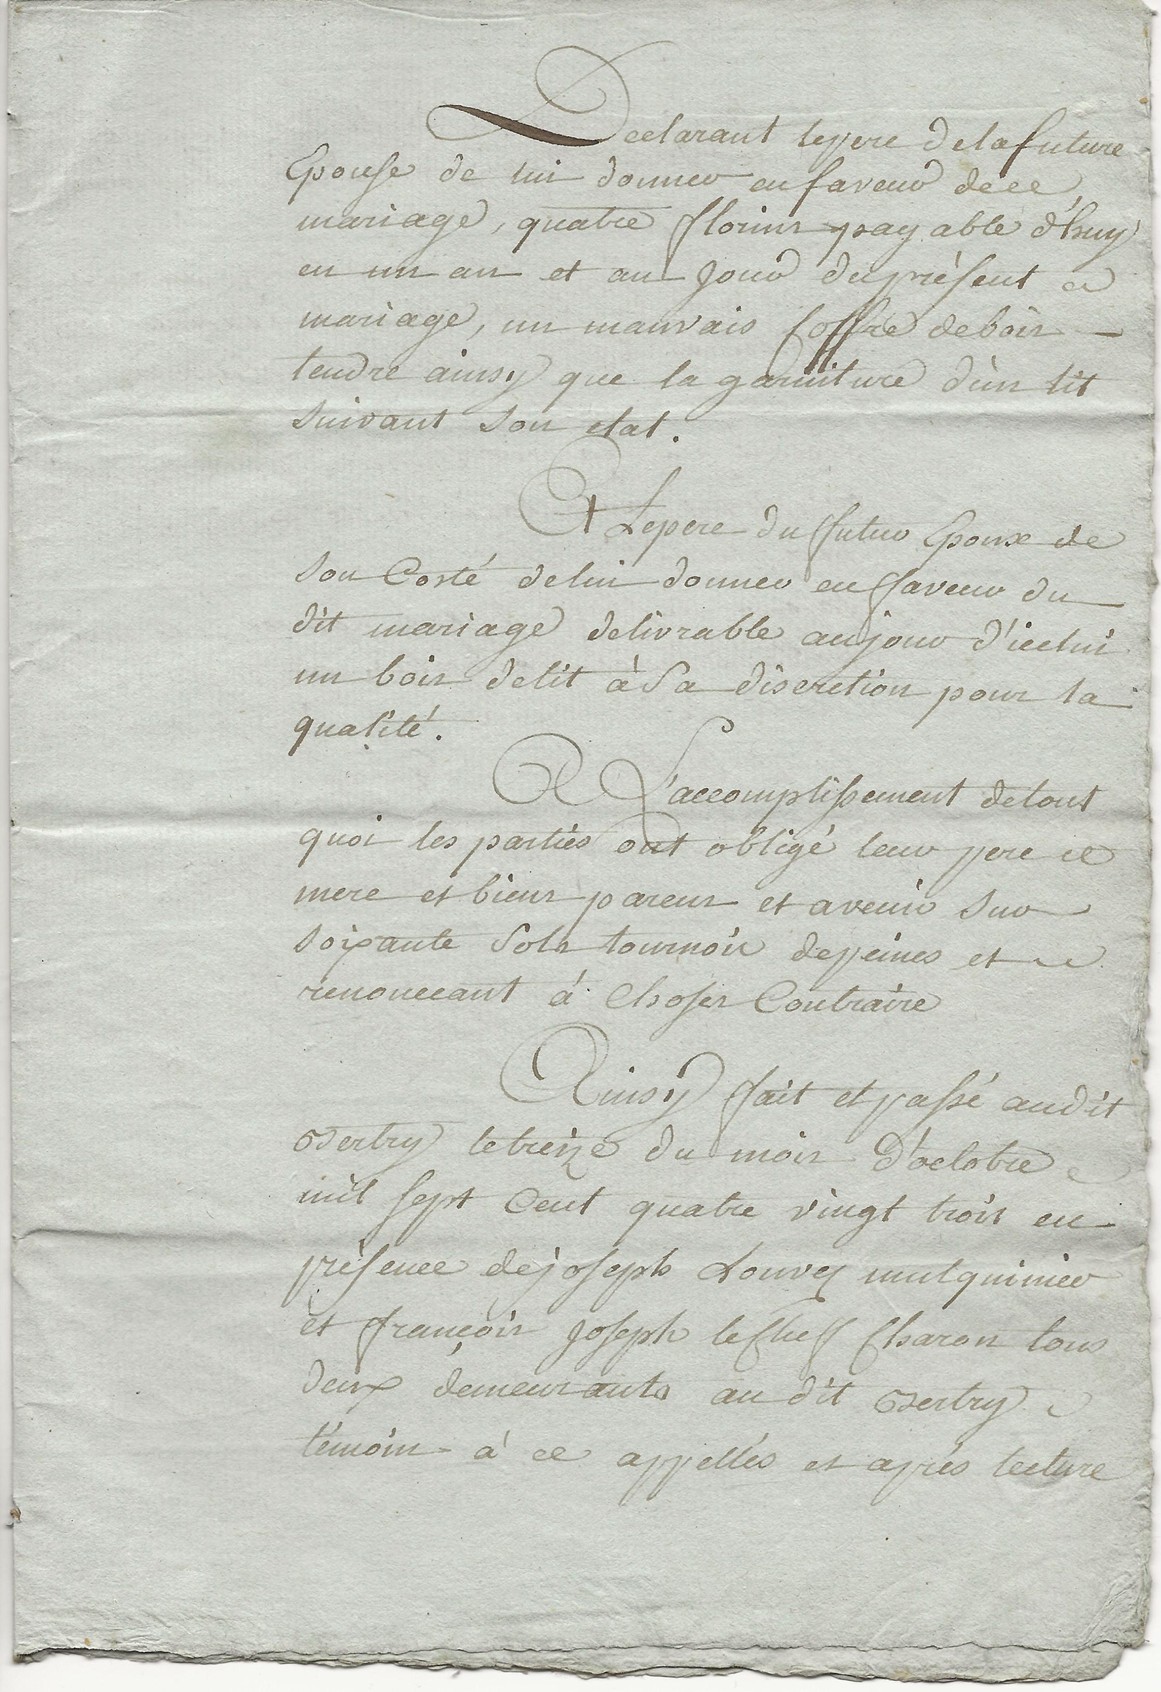 Declarant le pere de la future
Epouse de lui donner en faveur de ce
mariage, quatre florins payable d'huy
en un an et au jour du présent
mariage, un mauvais Coffre de bois
tendre ainsy que la garniture d'un lit
suivant son etat.
Et Le pere du futur Epoux de
son Costé de lui donner en faveur du
dit mariage delivrable au jour d'icelui
un bois de lit à Sa discretion pour la
qualité.
A L'accomplissement de tout
quoi les parties ont obligé leur pere et
mere et biens pareur et avenir sur
soixante Sols tournois de peines et
renoncant á Choses Contraire
Ainsy fait et passé audit
Bertry le treize du mois D'octobre
mil Sept Cent quatre vingt trois en
présence de joseph Louvez mulquinier
et françois joseph le Chef Charon tous
deux demeurants au dit Bertry
témoin à ce appellés et aprés lecture